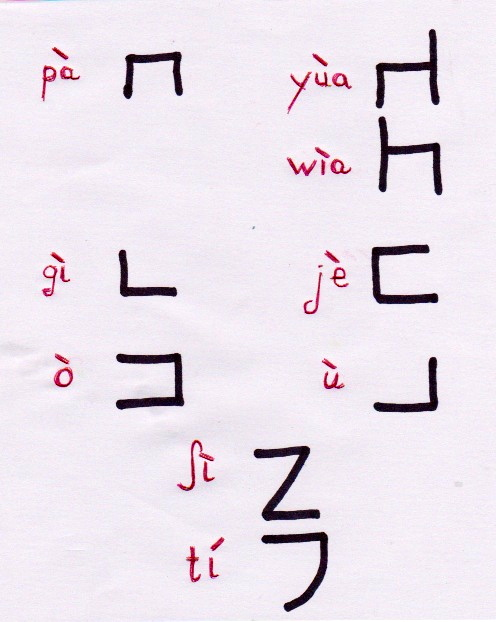 pà yùa
wìa
gì jè
ò ù
ʃì
tí